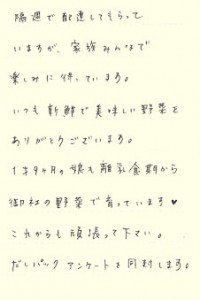 隔週で配達してもらって
いますが、家族みんなで
楽しみに待っています。
いつも新鮮で美味しい野菜を
ありがとうございます。
1才9ヶ月の娘も離乳食期から
御社の野菜で育っています♥
これからも頑張って下さい。
だしパックアンケートを同封します。